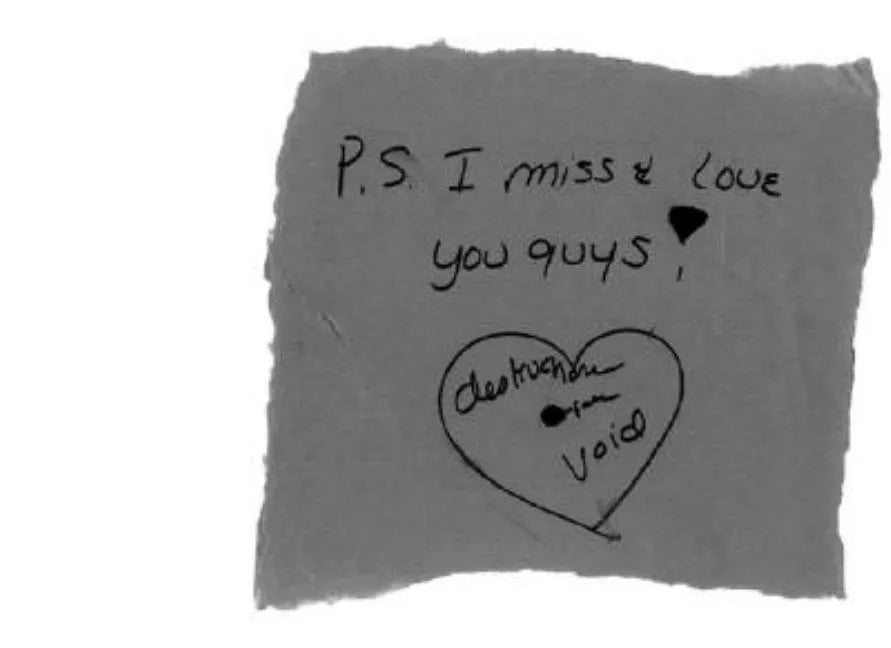 P.S. I miss & love
you guys!
destruction
void